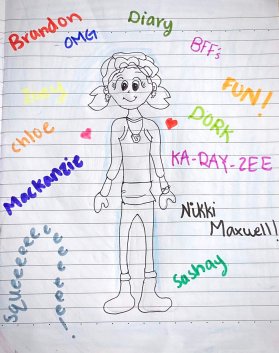 Brandon
OMG
Diary
BFF's
Zoey
FUN!
chloe
DORK
Mackanzie
KA-DAY-ZEE
Nikki
Maxwell!
Sashay